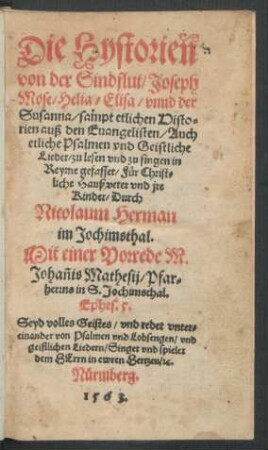 Die Hystorien
von der Sindflut / Joseph
Mose / Helia / Elisa / vnnd der
Susanna / sampt etlichen Histo-
rien auß den Euangelisten / Auch
etliche Psalmen vnd Geistliche
Lieder / zu lesen vnd zu singen in
Reyme gefasset / Für Christ-
liche Hauß veter vnd jre
Kinder / Durch
Nicolaum Herman
im Jochimsthal.
Mit einer Vorrede M.
Johañis Mathesij / Pfar-
herrns in S. Jochimsthal.
Ephes. 5.
Seyd volles Geistes / vnd redet vnter-
einander von Psalmen vnd Lobsengen / vnd
geistlichen Liedern / Singet vnd spielet
dem HErrn in ewren Hertzen / ꝛc.
Nürmberg.
1563.